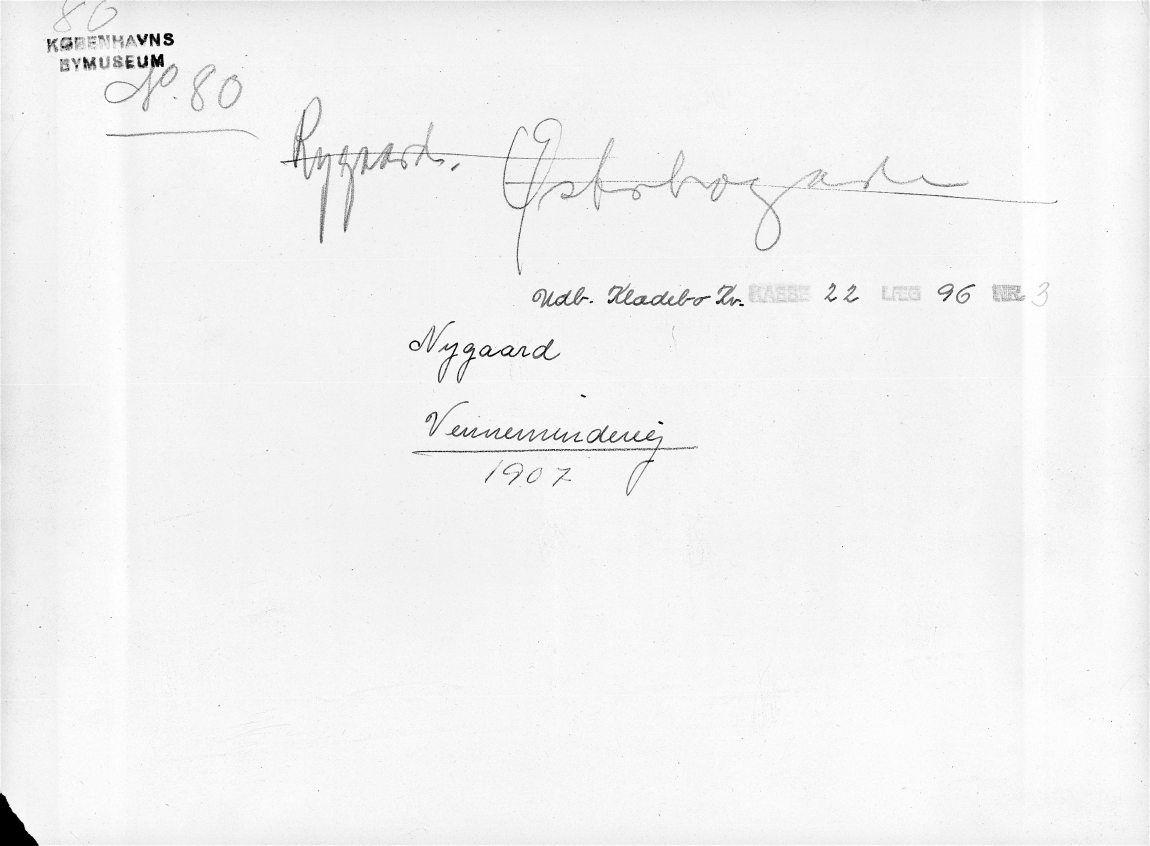 80
KØBENHAVNS
BYMUSEUM
N°. 80
Rygaard. Østerbrogade
Udb. Kladebo Kv. KASSE 22 LÆG 96 NR. 3
Nygaard
Vennemindevej
1907